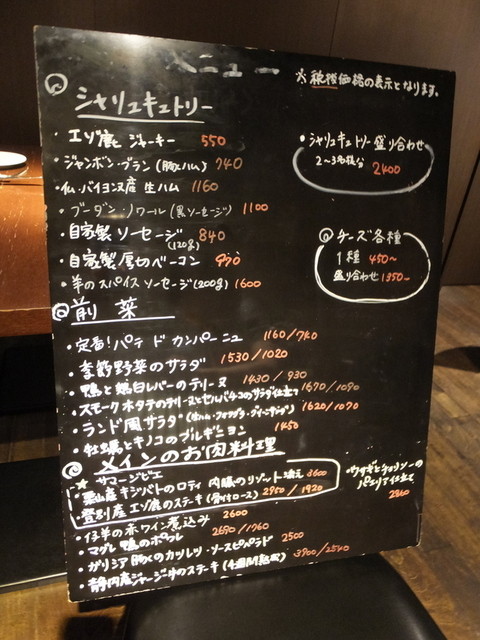 メニュー
※税抜価格の表示となります。
シャリュキュトリー
・エゾ鹿 ジャーキー 550
・ジャンボン・ブラン(豚ももハム) 740
・仏・バイヨンヌ産 生ハム 1160
・ブーダン・ノワール(黒ソーセージ) 1100
・自家製 ソーセージ(120g) 840
・自家製 厚切ベーコン
・羊のスパイス ソーセージ(200g) 1600
・シャリュキュトリー盛り合わせ
2~3名様分 2400
チーズ各種
1種 450~
盛り合わせ 1350~
前菜
・定番!パテ ド カンパーニュ 1160/740
・季節野菜のサラダ 1530/1020
・鴨と鶏白レバーのテリーヌ 1430/930
・スモークホタテのテリーヌとセルバチコのサラダ仕立て 1670/1090
・ランド風サラダ 1620/1070
・牡蠣とキノコのブルギニヨン 1450
メインのお肉料理
★サマージビエ
・栗山産キジバトのロティ 内臓のリゾット添え 3600
・登別産 エゾ鹿のステーキ(骨付ロース) 2950/1920
・仔羊の赤ワイン煮込み 2600
・マグレ鴨のポワレ 2690/1760
・ガリシア豚くのカツレツ・ソースピペラド 2500
・静内産ジャージー牛のステーキ(4週間熟成) 3900/2540
・ウサギとチョリソーの
パエリア仕立て
2860